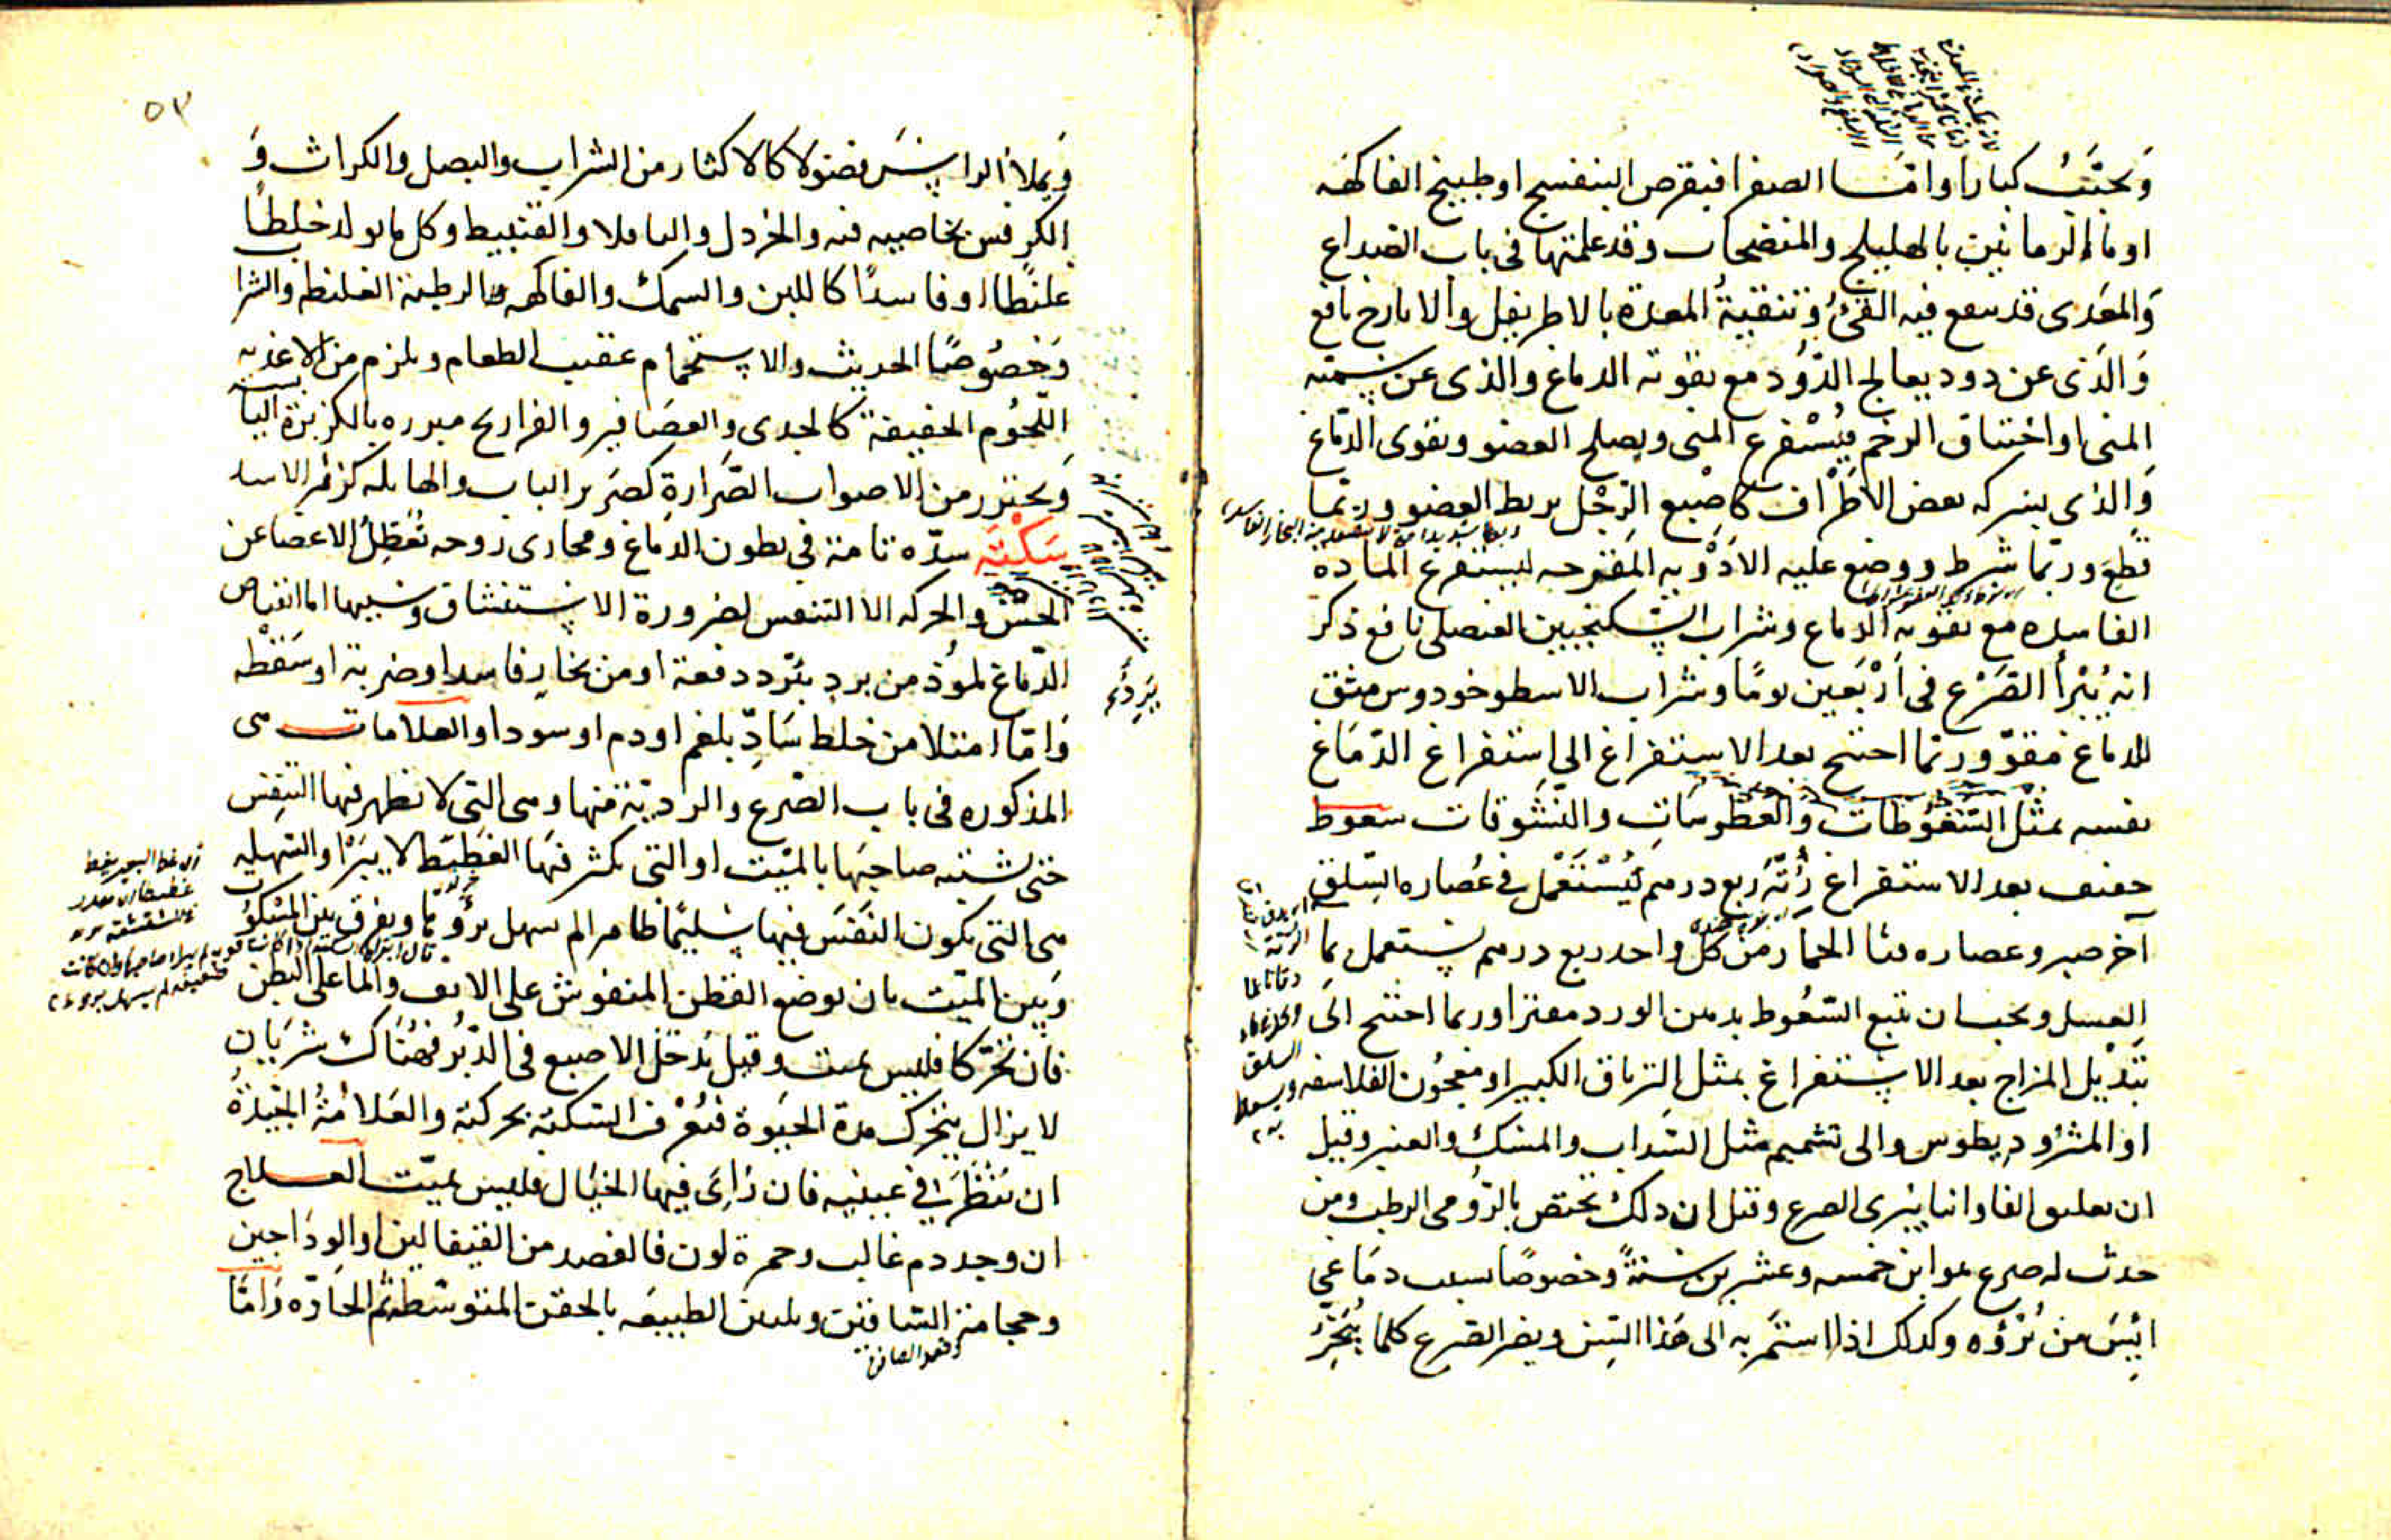 وتجتنب كبارا واما الصفرا فبقرص البنفسج او طبيخ الفاكهه
او ماء الرمانين بالهليلج والمنضجات وقد علمتها في باب الصداع
والمعدى قد ينفع فيه القئ وتنقية المعدة بالاطريفل والايارج نافع
والذى عن دود يعالج الدود مع تقوية الدماغ والذى عن سمية
المنى او اختناق الرحم فيستفرغ المنى ويصلح العضو ويقوى الدماغ
والذي بشركه بعض الاطراف كاصبع الرجل يربط العضو وربما
قطع وربما شرط ووضع عليه الادويه المقرحه ليستفرغ الماده
الفاسده مع تقويه الدماغ وشراب السكنجبين العنصلى نافع ذكر
انه يبرأ الصرع في اربعين يوما وشراب الاسطوخودوس منق
للدماغ مقو وربما احتيج بعد الاستفراغ الي استفراغ الدماغ
نفسه بمثل السعوطات والعطوسات والنشوقات سعوط
خفيف بعد الاستفراغ رُتّه ربع درهم يستعمل في عصاره السلق
آخر صبر وعصاره قثا الحمار من كل واحد ربع درهم يستعمل بما
العسل ويجب ان يتبع السعوط بدهن الورد مفترا وربما احتيج الى
تبديل المزاج بعد الاستفراغ بمثل الترياق الكبير او معجون الفلاسفه
او المثروديطوس والى تشميم مثل السداب والمسك والعنبر وقيل
ان تعليق الفاوانيا يبرى الصرع وقيل ان ذلك يختص بالرومى الرطب ومن
حدث له صرع هو ابن خمسه وعشرين سنة وخصوصا لسبب دماغي
ائيس من برؤه وكذلك اذا استمر به الى هذا السن ويضر الصرع كلما يبخر
٥٣
ويملأ الراس فضولا كالاكثار من الشراب والبصل والكراث و
الكرفس بخاصيه فيه والخردل والباقلا والقنبيط وكل ما يولد خلطا
غليظا او فاسدا كاللبن والسمك والفاكهه الرطبة الغليظه والشراب
وخصوصا الحديث والاستحمام عقيب الطعام ويلزم من الاغذيه
اللحوم الخفيفة كالجدى والعصافير والفراريج مبرره بالكزبرة اليابسه
ويحترز من الاصوات الضرارة كصرير الباب والهايله كزئير الاسد
سكتة سدّه تامة في بطون الدماغ ومجارى روحه تعطل الاعضا عن
الحس والحركه الا التنفس لضرورة الاستنشاق وسببها اما انقباض
الدماغ لموذ من برد يرد دفعة او من بخار فاسد او ضربة او سقطه
واما امتلا من خلط سادّ بلغم او دم او سودا والعلامات هى
المذكوره في باب الصرع والرديّة منها وهى التى لا تظهر فيها التنفس
حتى يشتبه صاحبها بالميت او التى يكثر فيها الغطيط لا يبرا والسهله
هى التى يكون النفس فيها سليما ظاهرا لم يسهل برؤها ويفرق بين المسكوت
وبين الميت بان يوضع القطن المنفوش على الانف والما على البطن
فان تحركا فليس بميت وقيل يدخل الاصبع في الدبر فهناك شريان
لا يزال يتحرك مدة الحيوة فتعرف السكته بحركته والعلامة الجيدة
ان تنظر في عينيه فان رائ فيها الخيال فليس بميت العلاج
ان وجد دم غالب وحمرة لون فالفصد من القيفالين او الوداجين
وحجامة الساقين وتليين الطبيعه بالحقن المتوسطه ثم الحادّه واما
وفصد الصافن